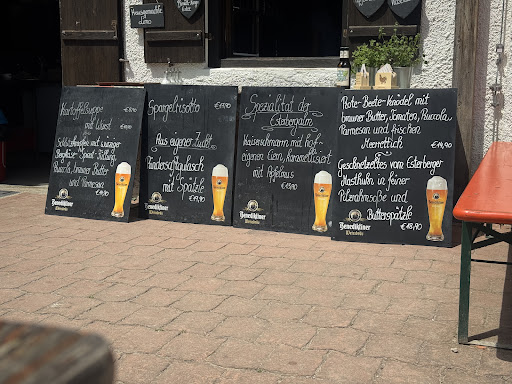 Hausgemachte
Limo
Kartoffelsuppe
mit Wurst
mit
Rucola, brauner Butter
und Parmesan
Benediktiner
Weissbräu
Spargelrisotto
Aus eigener Zucht
Rindersaftgulasch
mit Spätzle
€19,90
Benediktiner
Weissbräu
Spezialität der
Esterbergalm
Kaiserschmarrn mit hof -
eigenen Eiern, karamellisiert
mit Apfelmus
Benediktiner
Weissbräu
Rote-Beete-Knödel mit
brauner Butter, Tomaten, Rucola,
Parmesan und frischen
Meerrettich
€14,90
Geschnetzeltes vom Esterberger
Masthuhn in feiner
Pilzrahmsoße und
Butterspätzle
€18,90
Benediktiner
Weissbräu